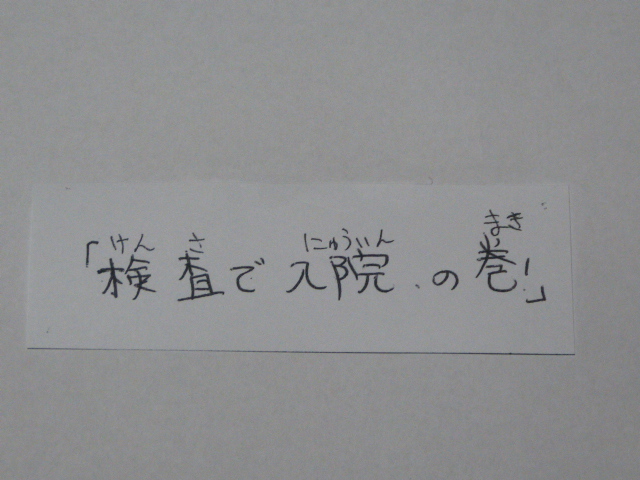 「検査で入院の巻!」
けん さ にゅういん まき